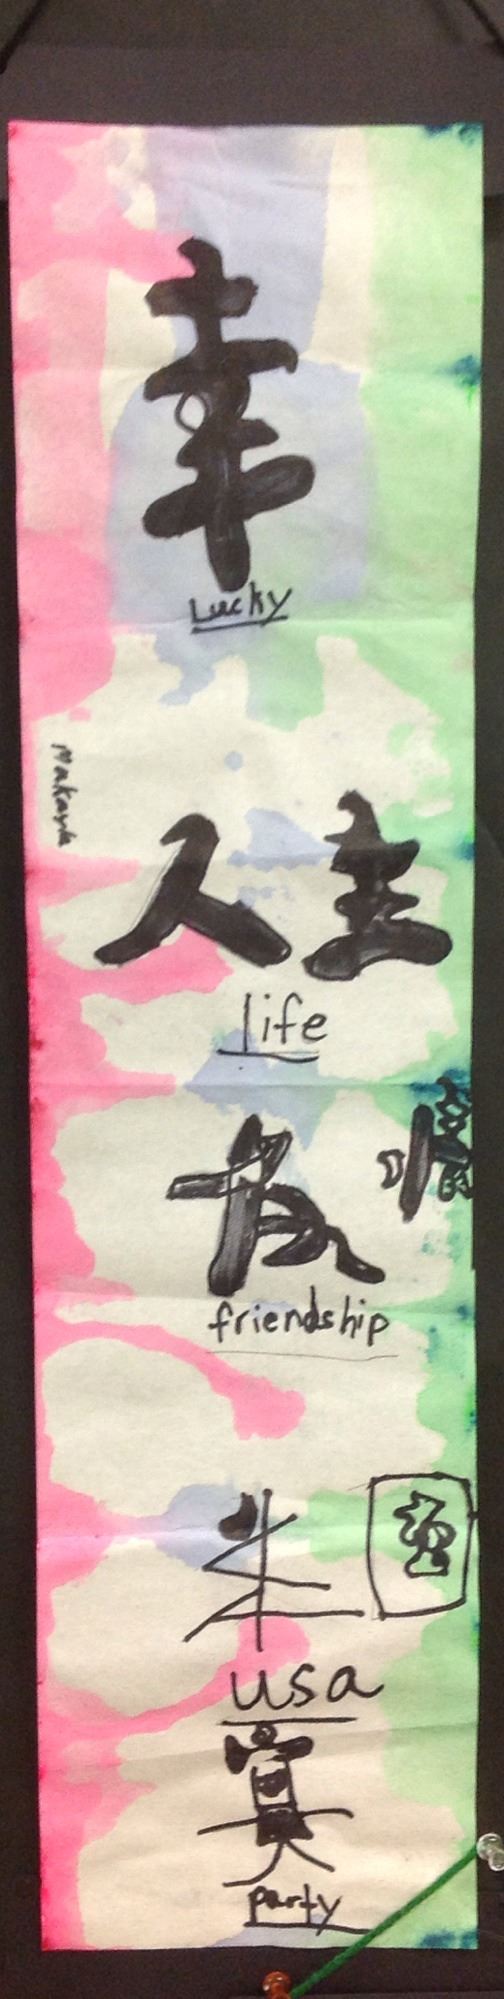 幸
Lucky
Makayla
人生
Life
友
friendship
usa
party